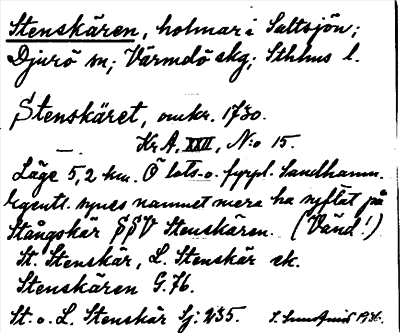 Stenskären, holmar i Saltsjön;
Djurö sn; Värmdö skg; Sthlms l.
Stenskäret, omkr. 1730.
Kr.A. XXII, N:o 15.
Läge 5,2 km. Ö lots- o. fyrpl. Sandhamn.
Egentl. synes namnet mera ha syftat på
Stångskär SSV Stenskären. (Vänd!)
St. Stenskär, L. Stenskär ek.
Stenskären G. 76.
St. o. L. Stenskär Sj. 235. 1936.